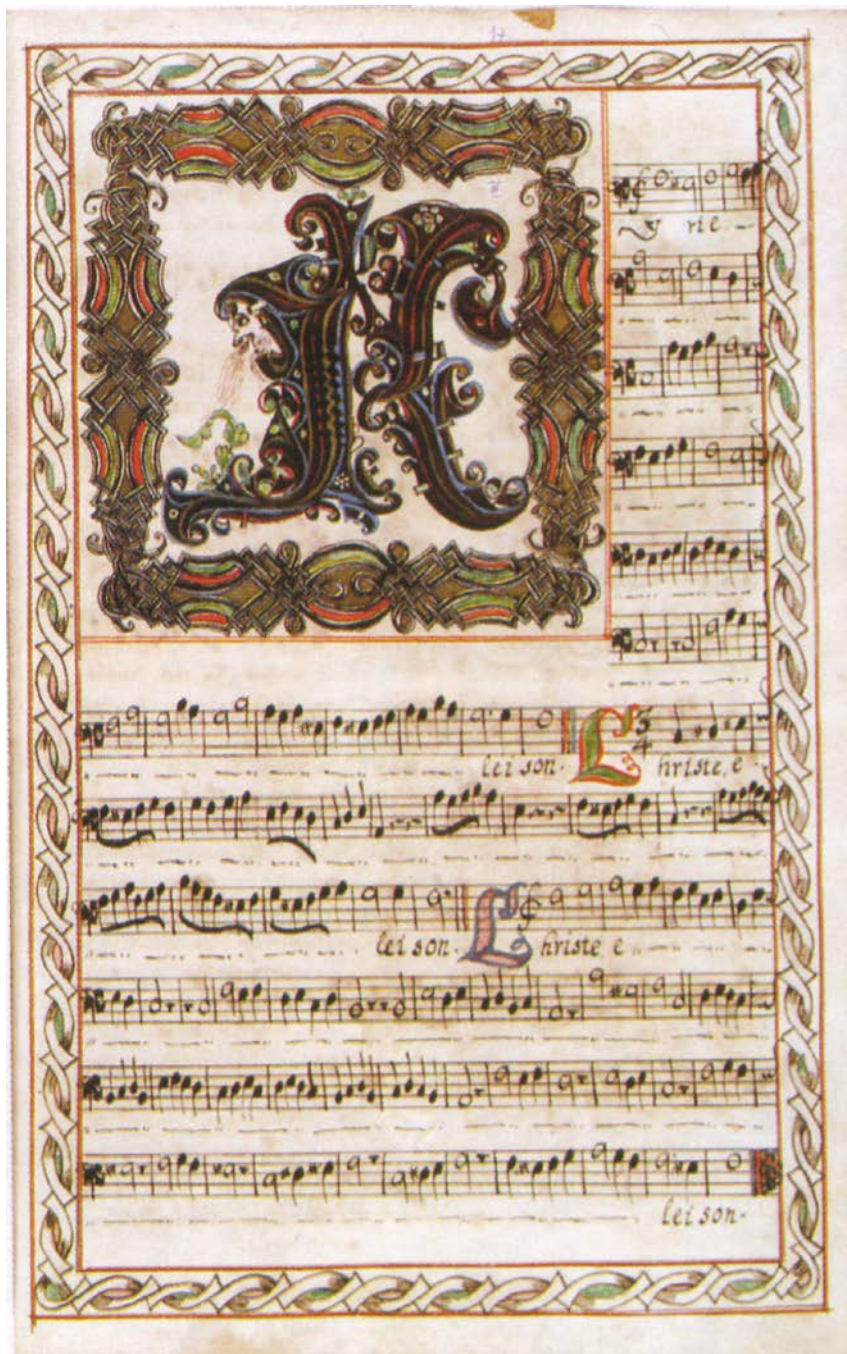 Ky rie
lei son. 3/4 Christe, e
lei son. Christe e
lei son.